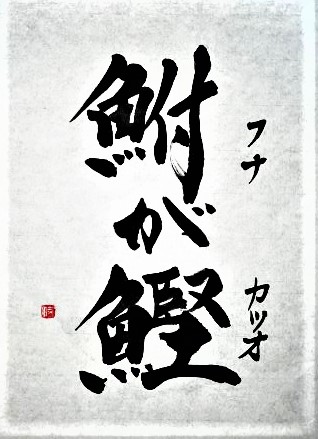 鮒が鰹
フナ
カツオ